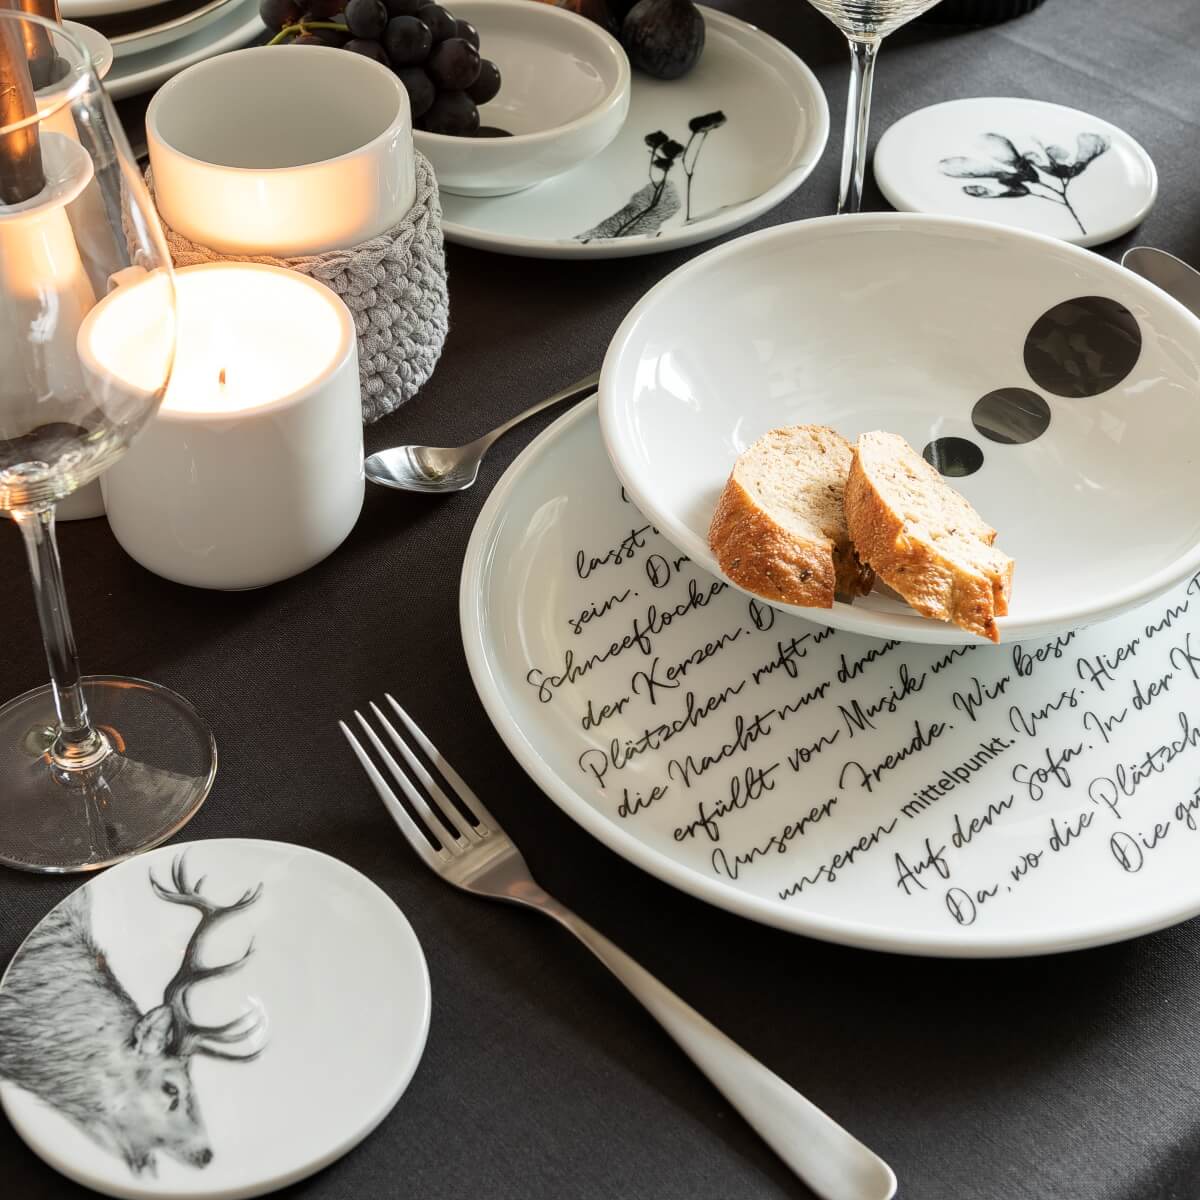 lasst
sein. Dr
Schneeflocke
der Kerzen. D
Plätzchen ruft u
die Nacht nur drau
erfüllt von Musik un
Unserer Freude. Wir besin
unseren mittelpunkt. Uns. Hier am
Auf dem Sofa. In der K
Da, wo die Plätzch
Die gu